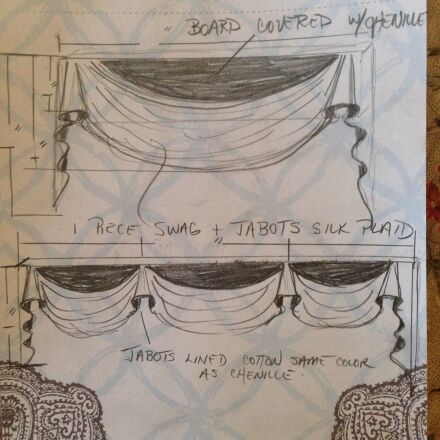 BOARD COVERED W/CHENILLE
1 PIECE SWAG + JABOTS SILK PLAID
JABOTS LINED COTTON SAME COLOR
AS CHENILLE.